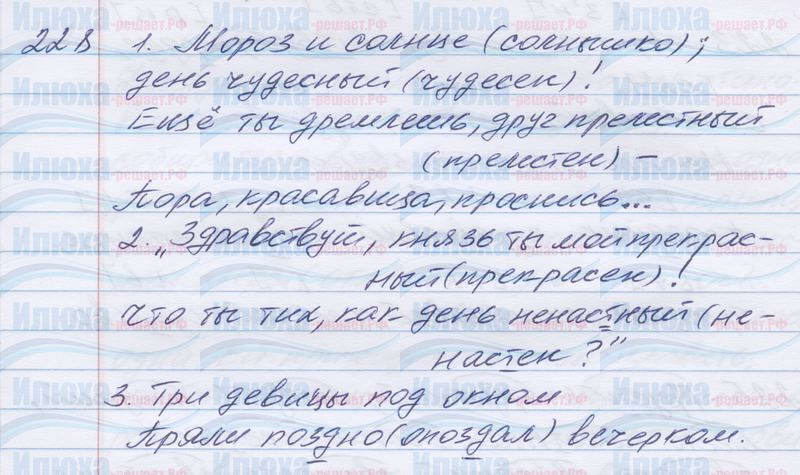 228 1. Мороз и солнце (солнышко);
день чудесный (чудесен)!
Ещё ты дремлешь, друг прелестный
(прелестен) –
Пора, красавица, проснись...
2. „Здравствуй, князь ты мой прекрас-
ный (прекрасен)!
Что ты тих, как день ненастный (не-
настен?"
3. Три девицы под окном
Пряли поздно (опоздал) вечерком.